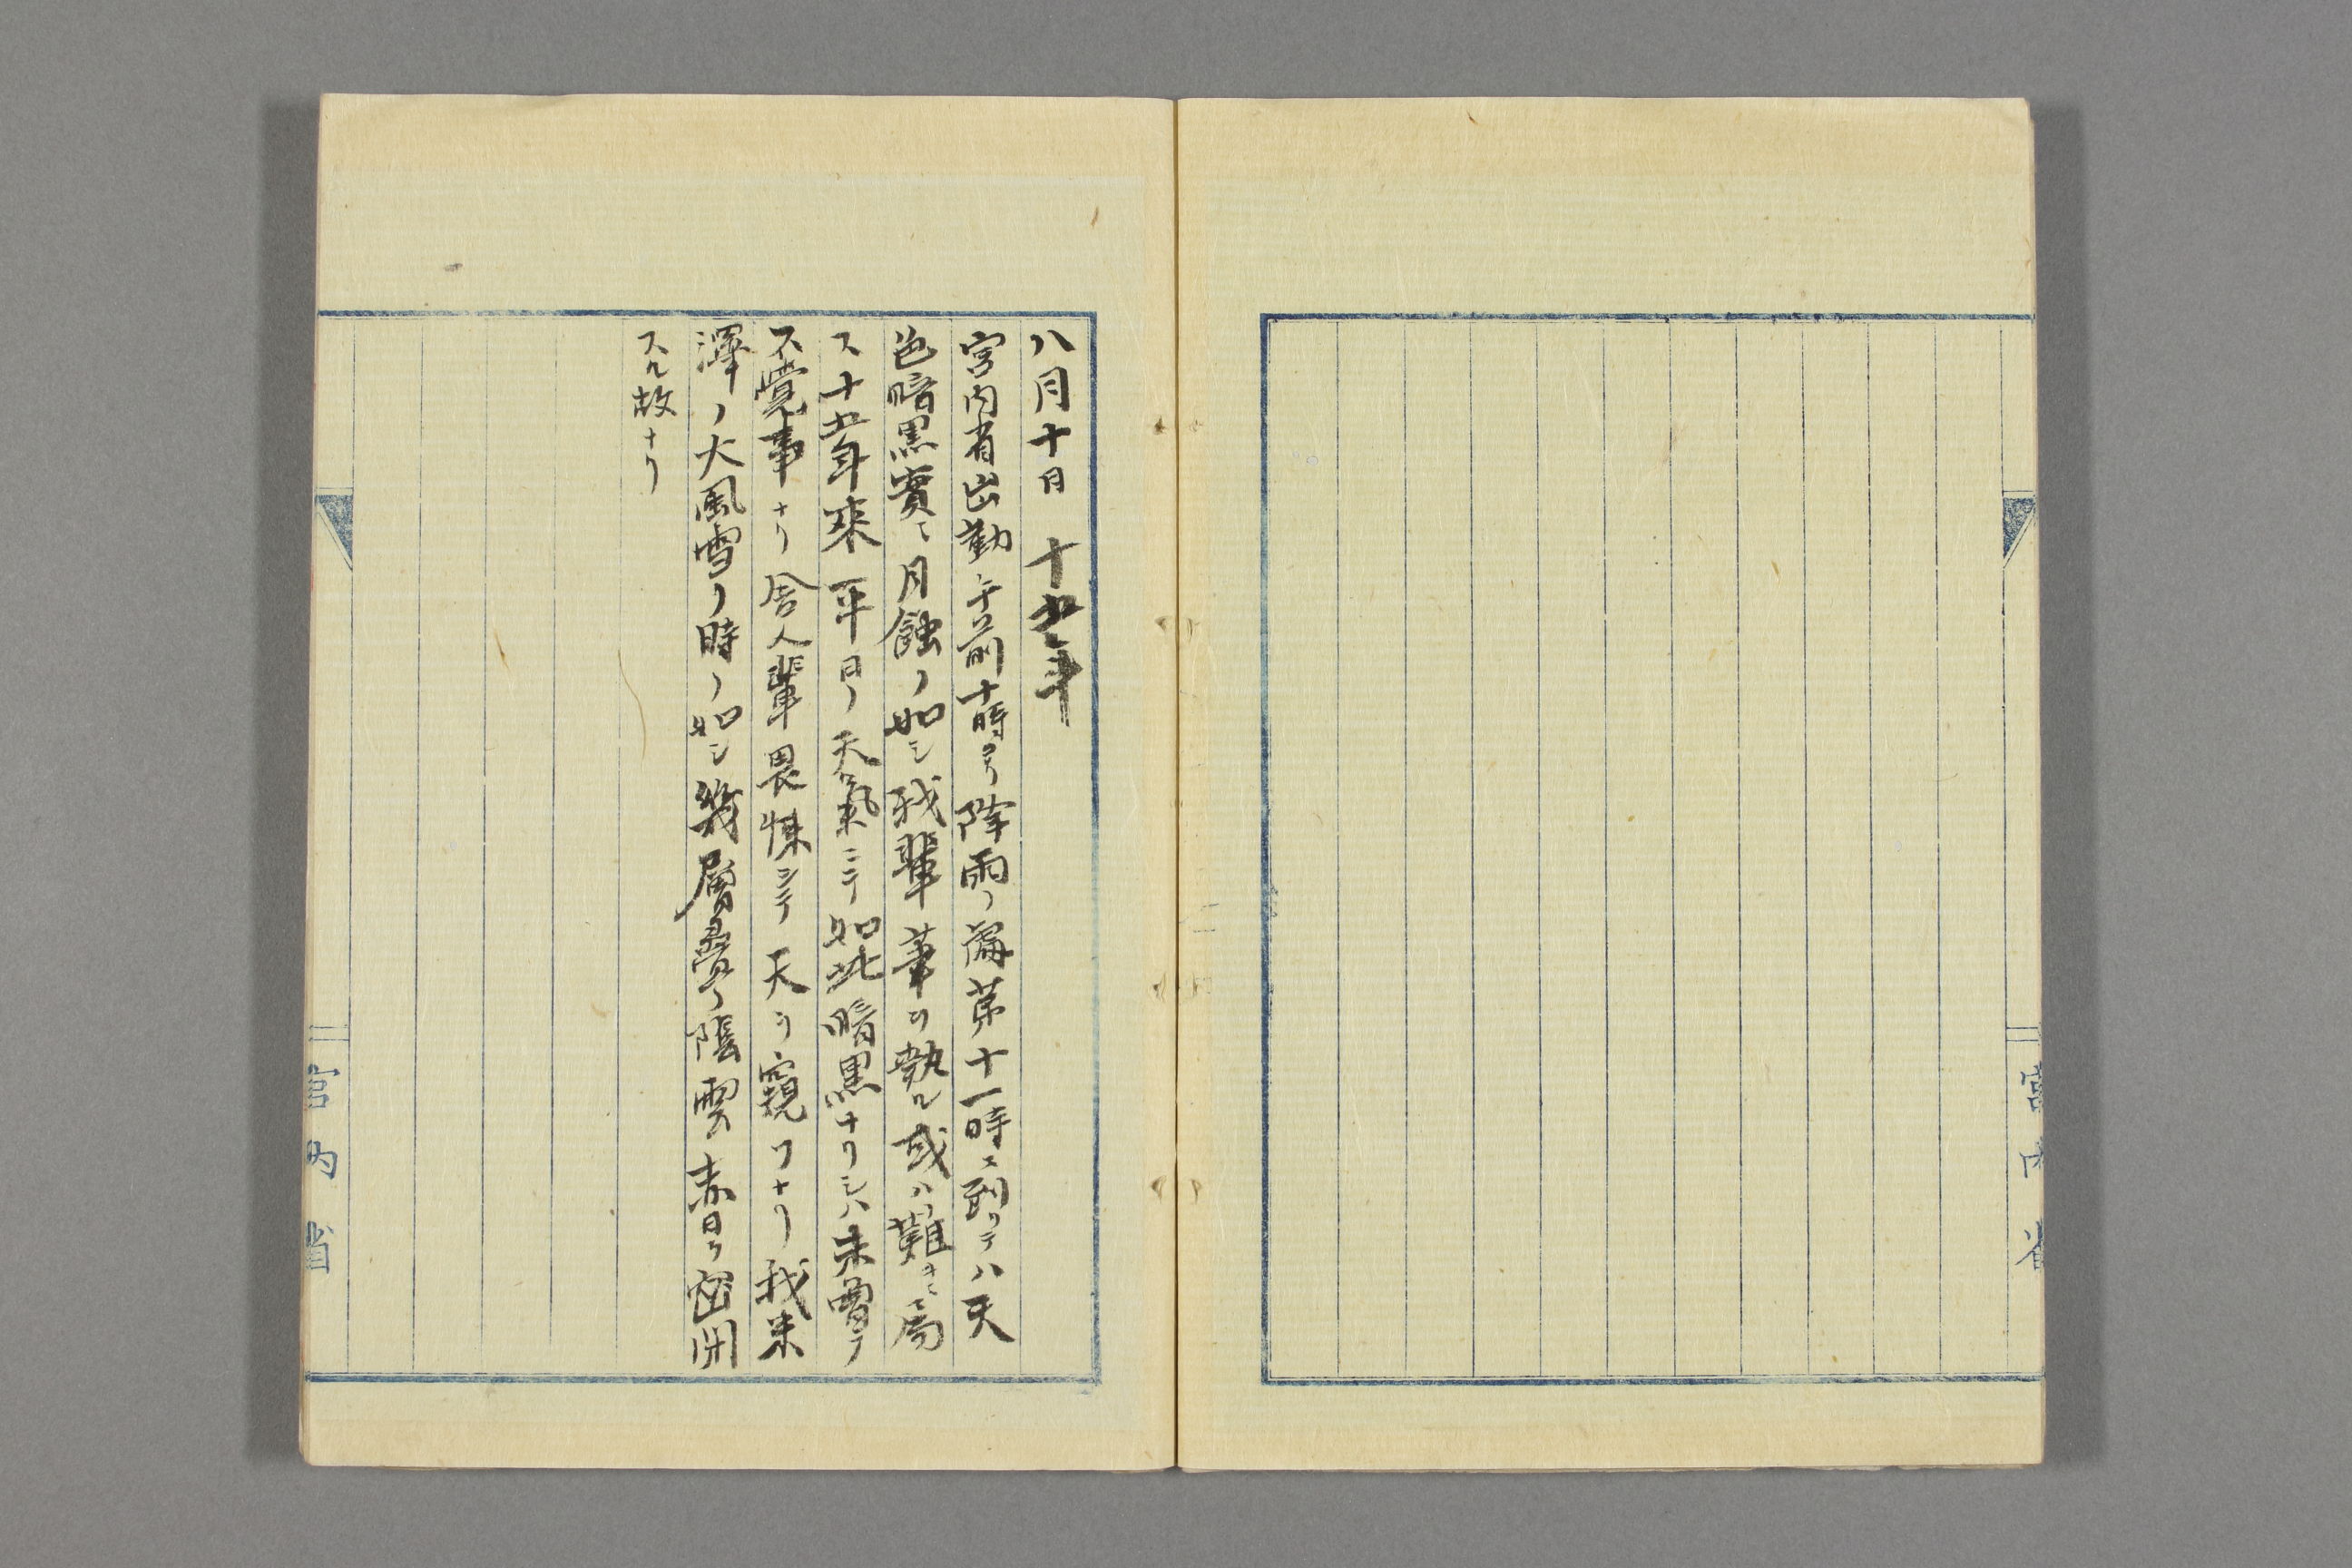 宮内省
八月十日　十五年
宮内省出勤午前十時ヨリ降雨ノ處第十一時ニ到リテハ天
色暗黒實ニ月蝕ノ如シ我輩筆ヲ執ル或ハ難キニ屬
ス十五年来平日ノ天氣ニテ如此暗黒ナリシハ未曽テ
不覚事ナリ舎人輩畏悚シテ天ヲ窺フナリ我米
澤ノ大風雪ノ時ノ如シ幾層疊ノ陰雲赤日ヲ密閉
スル故ナリ
宮内省